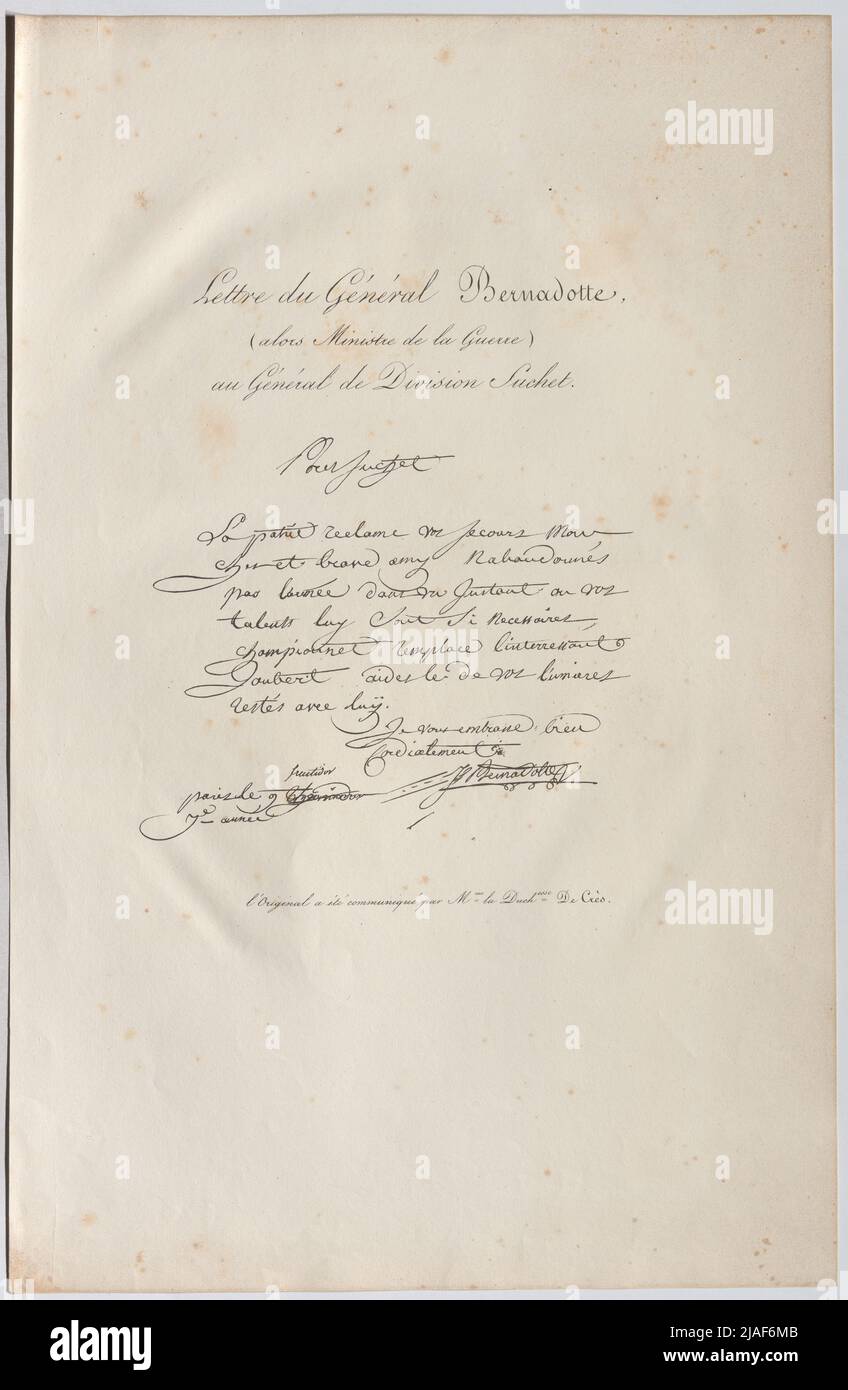 Lettre du Général Bernadotte,
(alors Ministre de la Guerre)
au Général de Division Suchet.
Pour Suchet
La patrie reclame vos secours Mon
cher et brave amy Nabandonnés
pas l'année dans un Instant ou vos
talents luy sont si necessaires,
championnet remplace l'interressant
Joubert aides le de vos lumieres
restés avec luÿ.
Je vous embrasse bien
Cordialement
fructidor
paris le 9 thermidor
JBernadotte
7e année
l'Original a été communiqué par Mme la Duchesse De Crès.
alamy
Image ID: 2JAF6MB
www.alamy.com